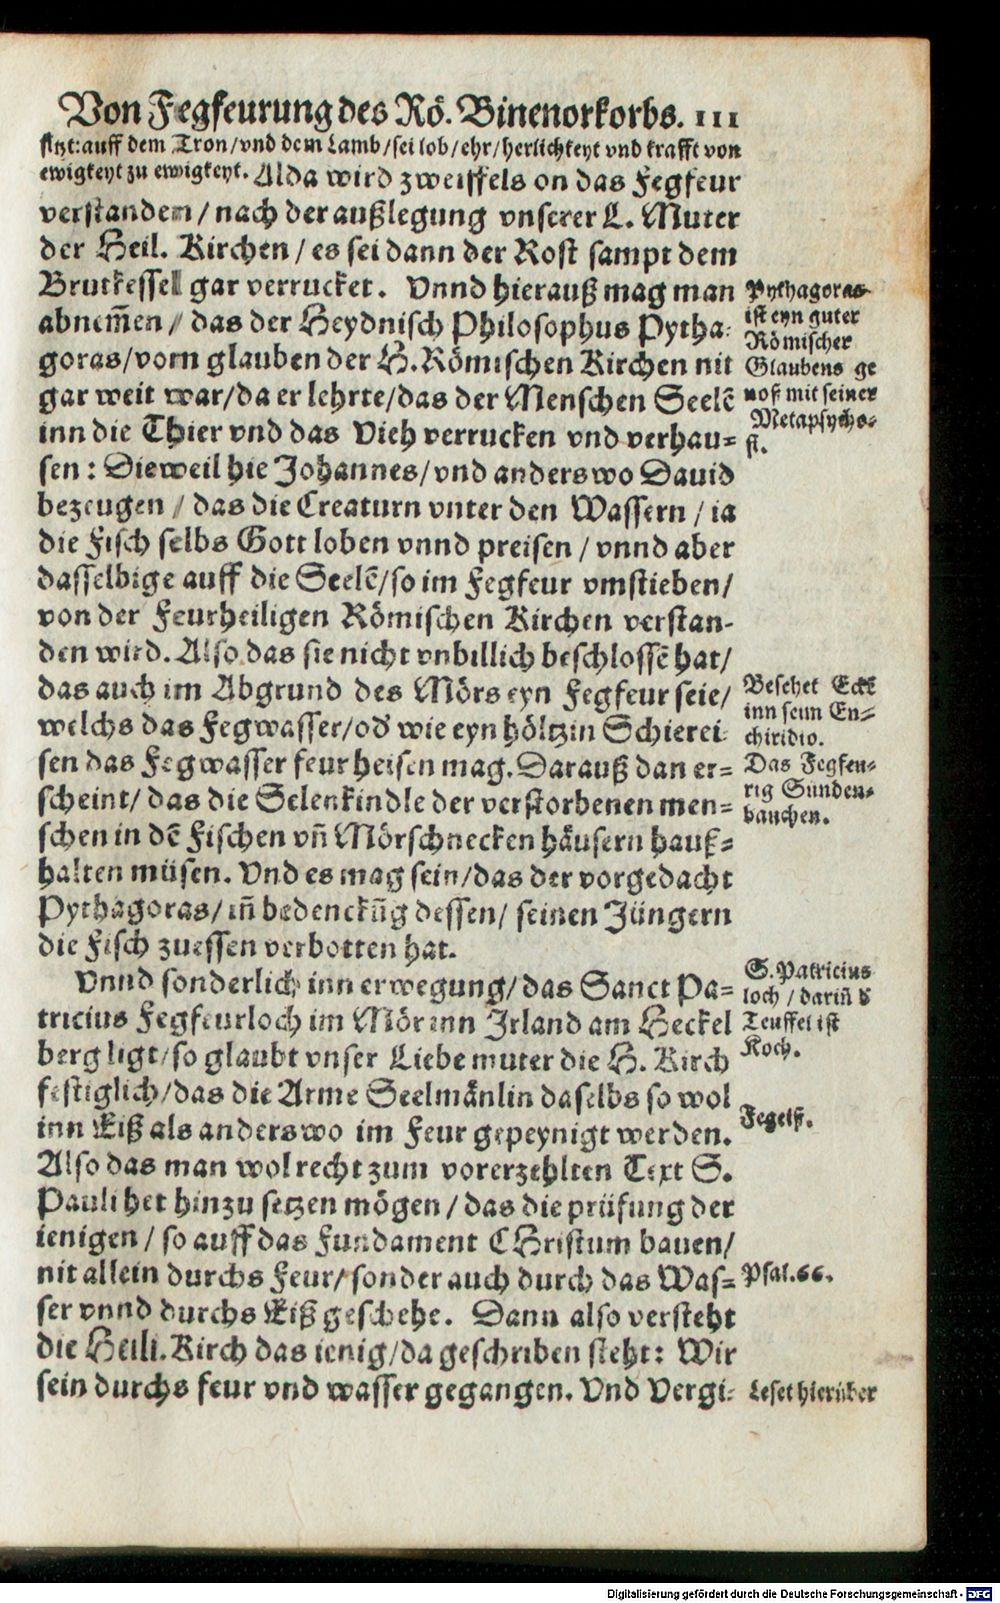 Von Fegfeurung des Rö. Binenorkorbs. 111
sitzt: auff dem Tron/vnd dem Lamb/sei lob/ehr/herlichkeyt vnd krafft von
ewigkeyt zu ewigkeyt. Alda wird zweiffels on das Fegfeur
verstanden/nach der außlegung vnserer L. Muter
der Heil. Kirchen/es sei dann der Rost sampt dem
Brutkessel gar verrucket. Vnnd hierauß mag man
abnem̃en/das der Heydnisch Philosophus Pytha-
goras/vom glauben der H. Römischen Kirchen nit
gar weit war/da er lehrte/das der Menschen Seelẽ
inn die Thier vnd das Vieh verrucken vnd verhau-
sen: Dieweil hie Johannes/vnd anderswo David
bezeugen/das die Creaturn vnter den Wassern/ia
die Fisch selbs Gott loben vnnd preisen/vnnd aber
dasselbige auff die Seelẽ/so im Fegfeur vmstieben/
von der Feurheiligen Römischen Kirchen verstan-
den wird. Also das sie nicht vnbillich beschlossẽ hat/
das auch im Abgrund des Mörs eyn Fegfeur seie/
welchs das Fegwasser/od' wie eyn höltzin Schierei-
sen das Fegwasserfeur heisen mag. Darauß dan er-
scheint/das die Selenkindle der verstorbenen men-
schen in dẽ Fischen vñ Mörschnecken häusern hauß-
halten müsen. Vnd es mag sein/das der vorgedacht
Pythagoras/iñ bedenckũg dessen/seinen Jüngern
die Fisch zuessen verbotten hat.
Vnnd sonderlich inn erwegung/das Sanct Pa-
tricius Fegfeurloch im Mör inn Irland am Heckel
berg ligt/so glaubt vnser Liebe muter die H. Kirch
festiglich/das die Arme Seelmänlin daselbs so wol
inn Eiß als anderswo im Feur gepeynigt werden.
Also das man wol recht zum vorerzehlten Text S.
Pauli het hinzu setzen mögen/das die prüfung der
ienigen/so auff das Fundament CHristum bauen/
nit allein durchs Feur/sonder auch durch das Was-
ser vnnd durchs Eiß geschehe. Dann also versteht
die Heili. Kirch das ienig/da geschriben steht: Wir
sein durchs feur vnd wasser gegangen. Vnd Vergi-
Pythagoras
ist eyn guter
Römischer
Glaubens ge
noß mit seiner
Metapsycho-
si.
Besehet Eckẽ
inn seim En-
chiridio.
Das Fegfeu-
rig Sünden-
bauchen.
S. Patricius
loch/dariñ d'
Teuffel ist
Koch.
Fegeiß.
Psal. 66.
Leset hierüber
Digitalisierung gefördert durch die Deutsche Forschungsgemeinschaft - DFG